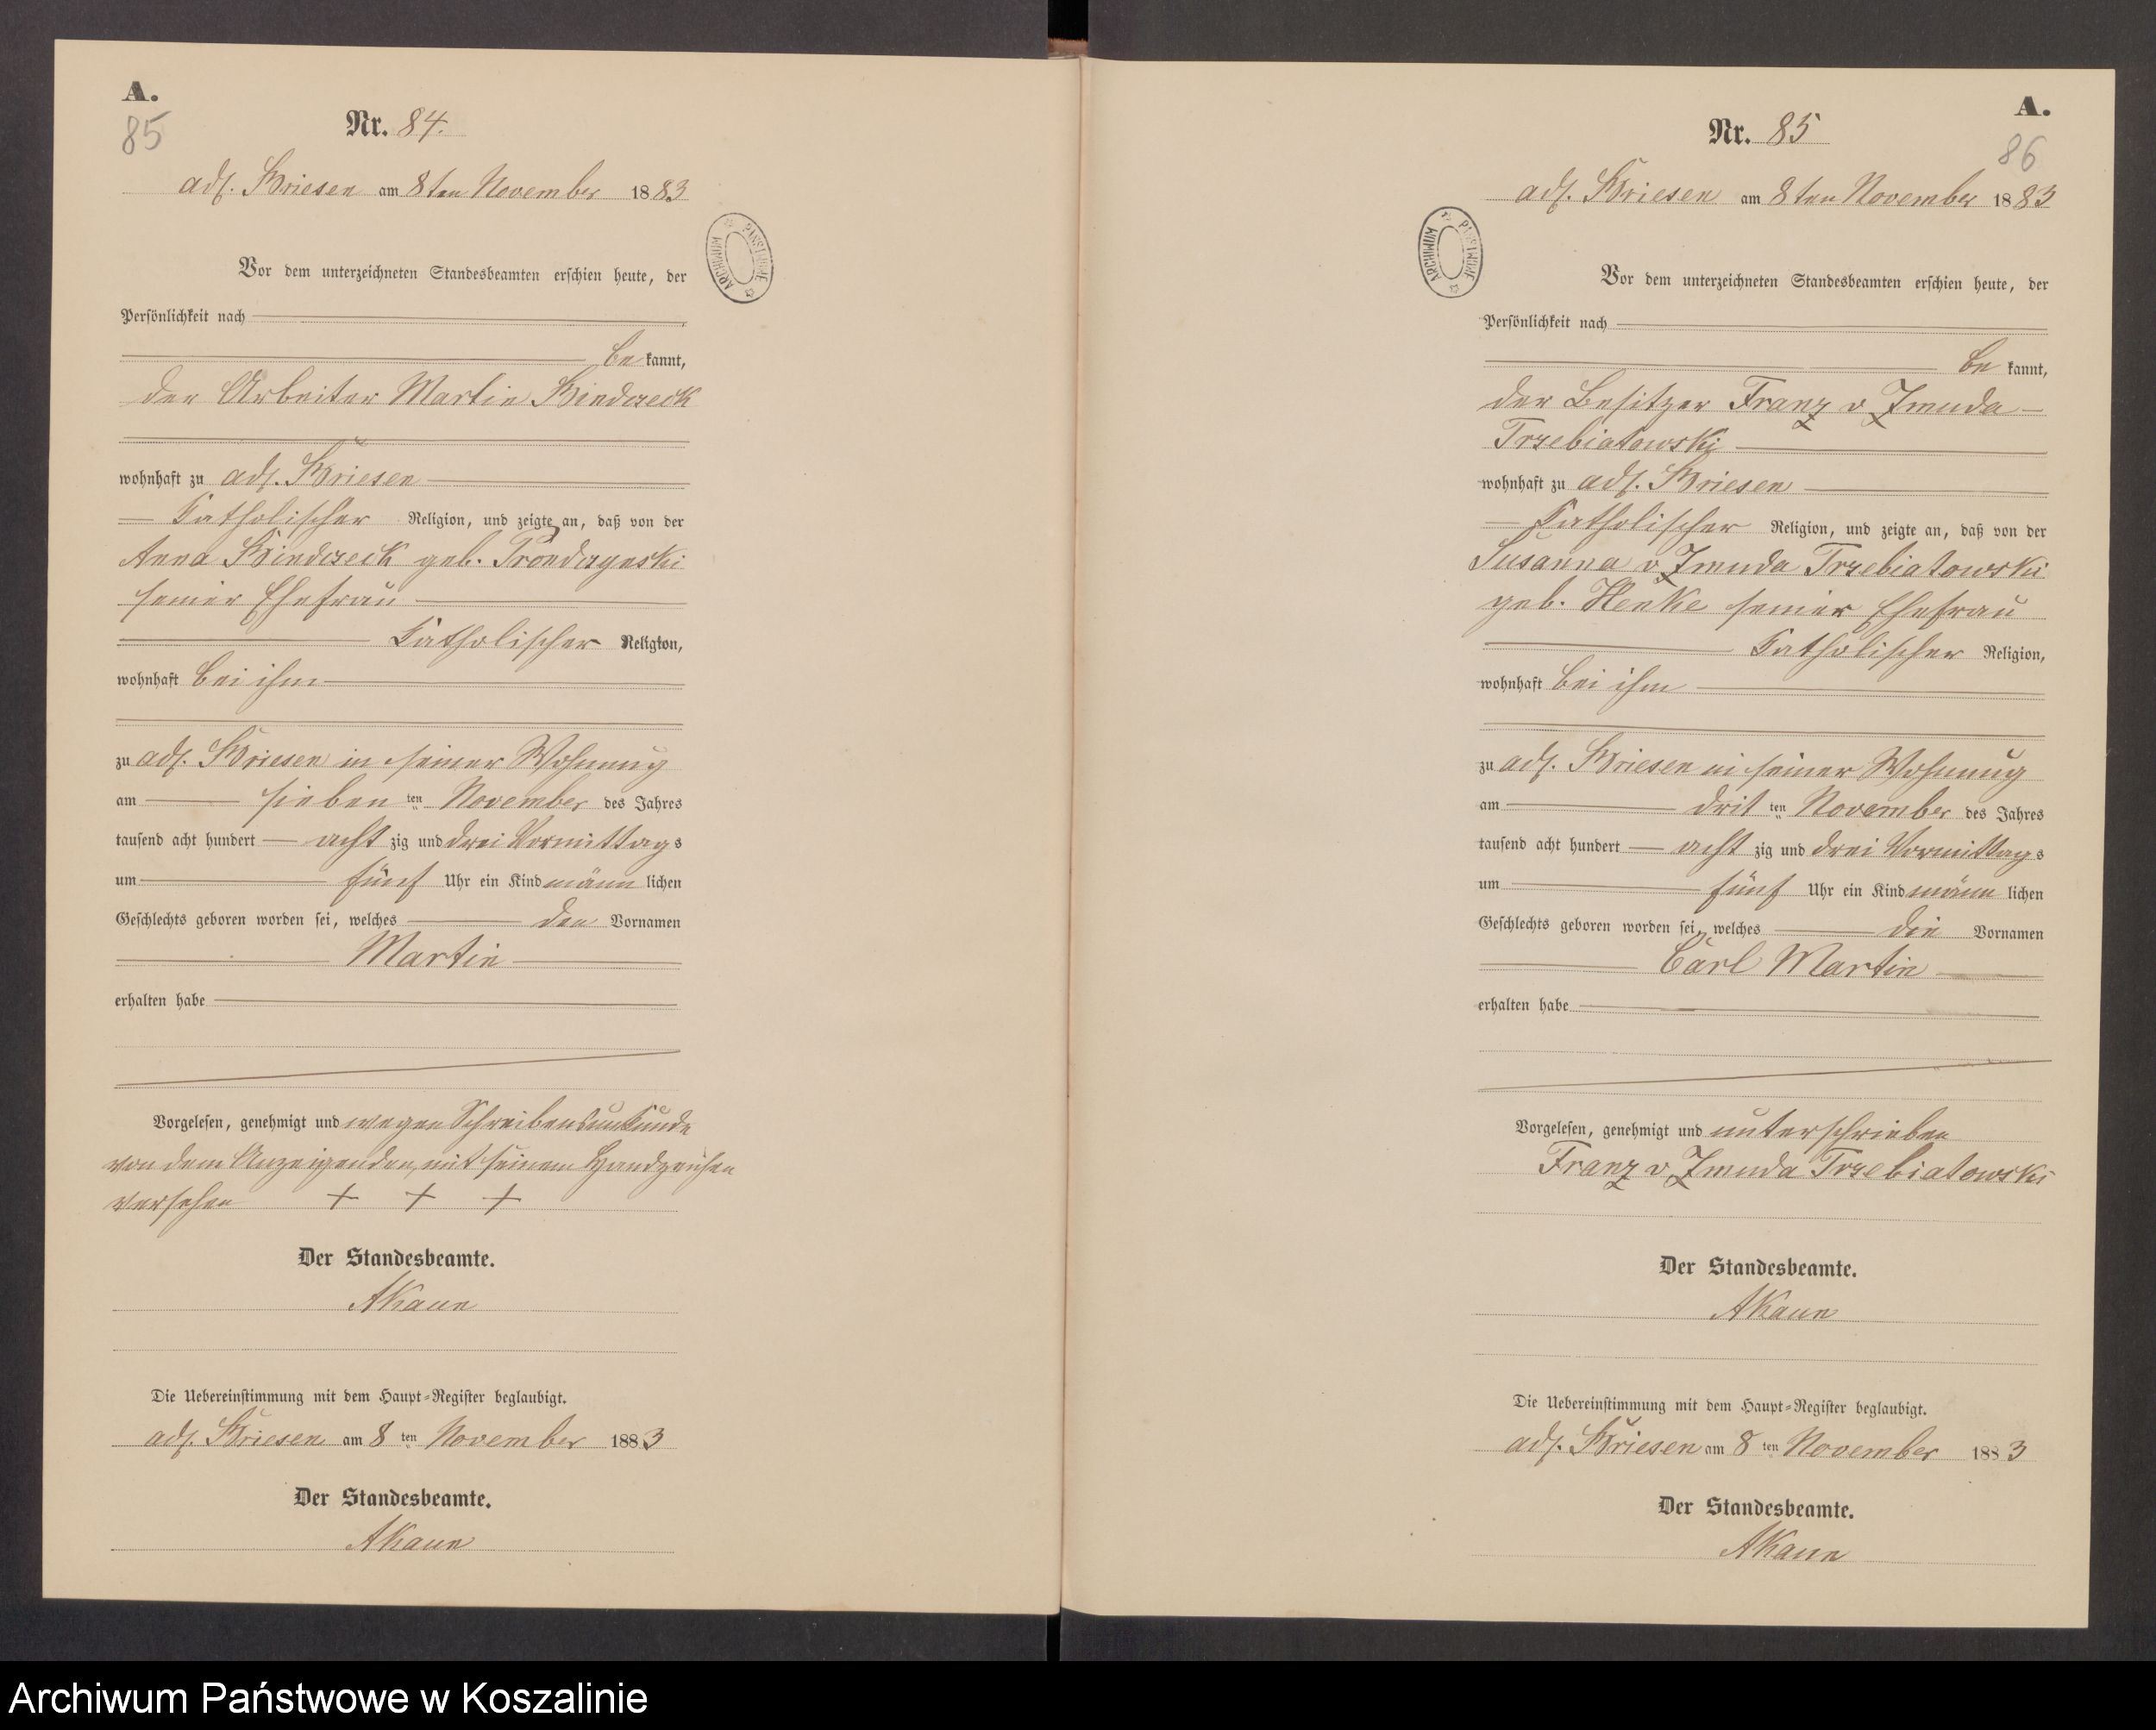 A.
85
Nr. 84.
adl. Briesen am 8ten November 1883
Vor dem unterzeichneten Standesbeamten erschien heute, der
Persönlichkeit nach
be kannt,
der Arbeiter Martin
wohnhaft zu adl. Briesen
katholischer Religion, und zeigte an, daß von der
Anna geb. Prondzynski
seiner Ehefrau
katholischer Religion,
wohnhaft bei ihm
zu adl. Briesen in seiner Wohnung
am sieben ten November des Jahres
tausend acht hundert acht zig und drei Vormittags
um fünf Uhr ein Kind männ lichen
Geschlechts geboren worden sei, welches den Vornamen
Martin
erhalten habe
Vorgelesen, genehmigt und wegen Schreibensunkunde
von dem Anzeigenden, mit seinem Handzeichen
versehen + + +
Der Standesbeamte.
AKaun
Die Uebereinstimmung mit dem Haupt-Register beglaubigt.
adl. Briesen am 8 ten November 1883
Der Standesbeamte.
AKaun
ARCHIWUM PAŃSTWOWE
A.
86
Nr. 85
adl. Briesen am 8ten November 1883
ARCHIWUM PAŃSTWOWE
Vor dem unterzeichneten Standesbeamten erschien heute, der
Persönlichkeit nach
be kannt,
der Besitzer Franz v Zmuda
Trzebiatowski
wohnhaft zu adl. Briesen
katholischer Religion, und zeigte an, daß von der
Susanna v Zmuda Trzebiatowski
geb. Henke seiner Ehefrau
katholischer Religion,
wohnhaft bei ihm
zu adl. Briesen in seiner Wohnung
am drit ten November des Jahres
tausend acht hundert acht zig und drei Vormittags
um fünf Uhr ein Kind männ lichen
Geschlechts geboren worden sei, welches die Vornamen
Carl Martin
erhalten habe
Vorgelesen, genehmigt und unterschrieben
Franz v Zmuda Trzebiatowski
Der Standesbeamte.
AKaun
Die Uebereinstimmung mit dem Haupt-Register beglaubigt.
adl. Briesen am 8 ten November 1883
Der Standesbeamte.
AKaun
Archiwum Państwowe w Koszalinie